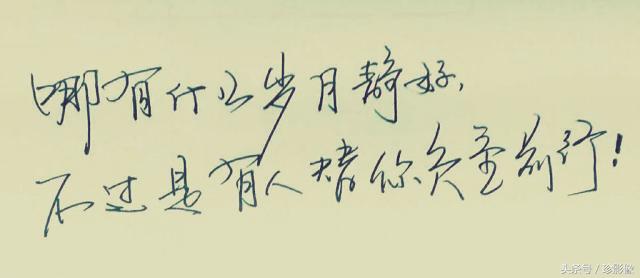 哪有什么岁月静好，
不过是有人替你负重前行！
头条号/珍影像